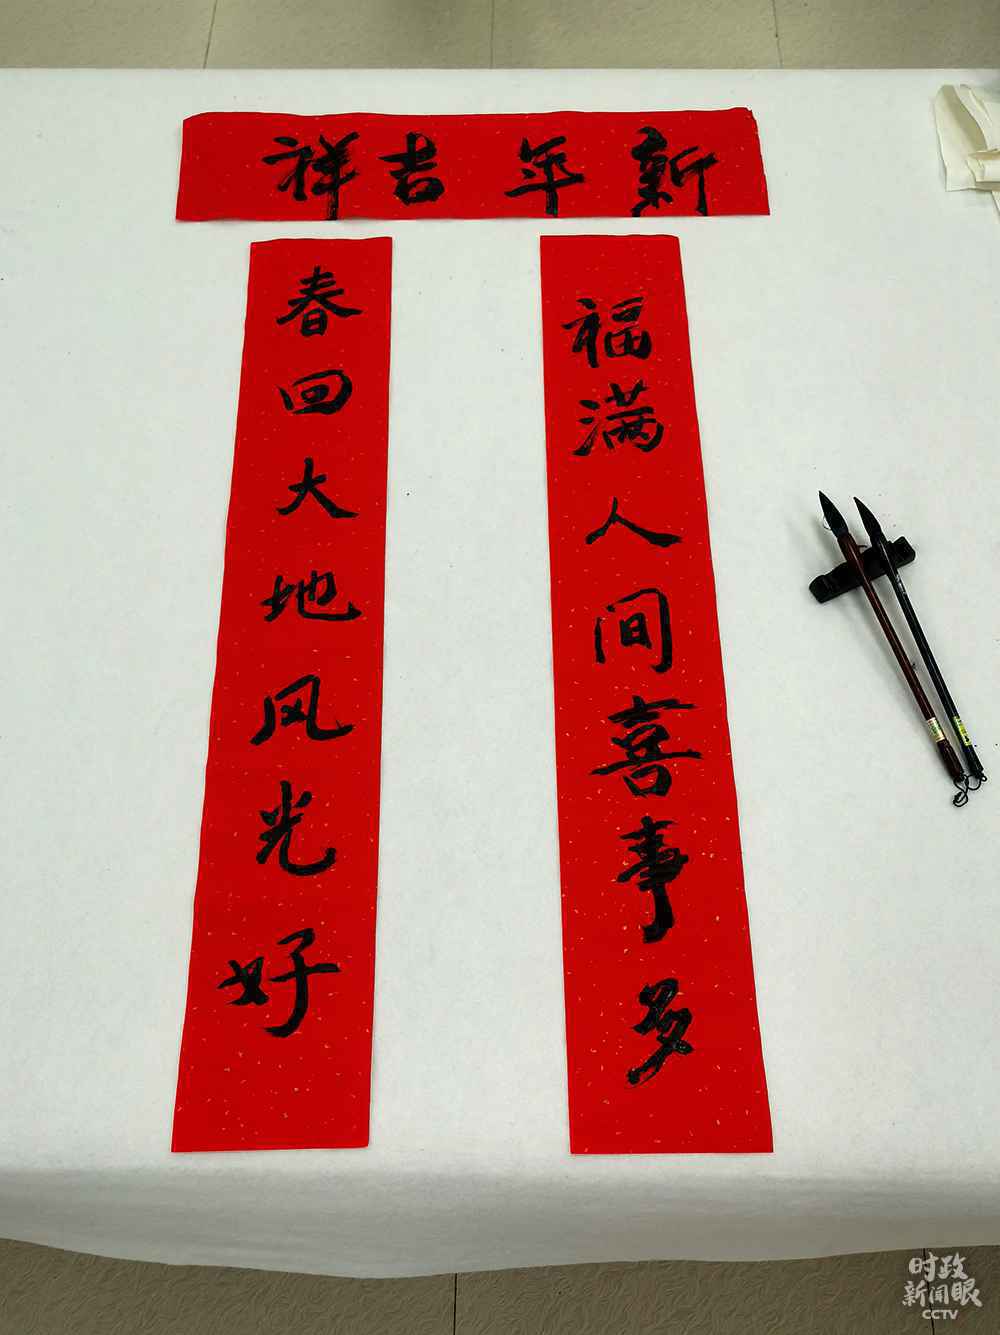 新年吉祥
福满人间喜事多
春回大地风光好
时政
新闻眼
CCTV